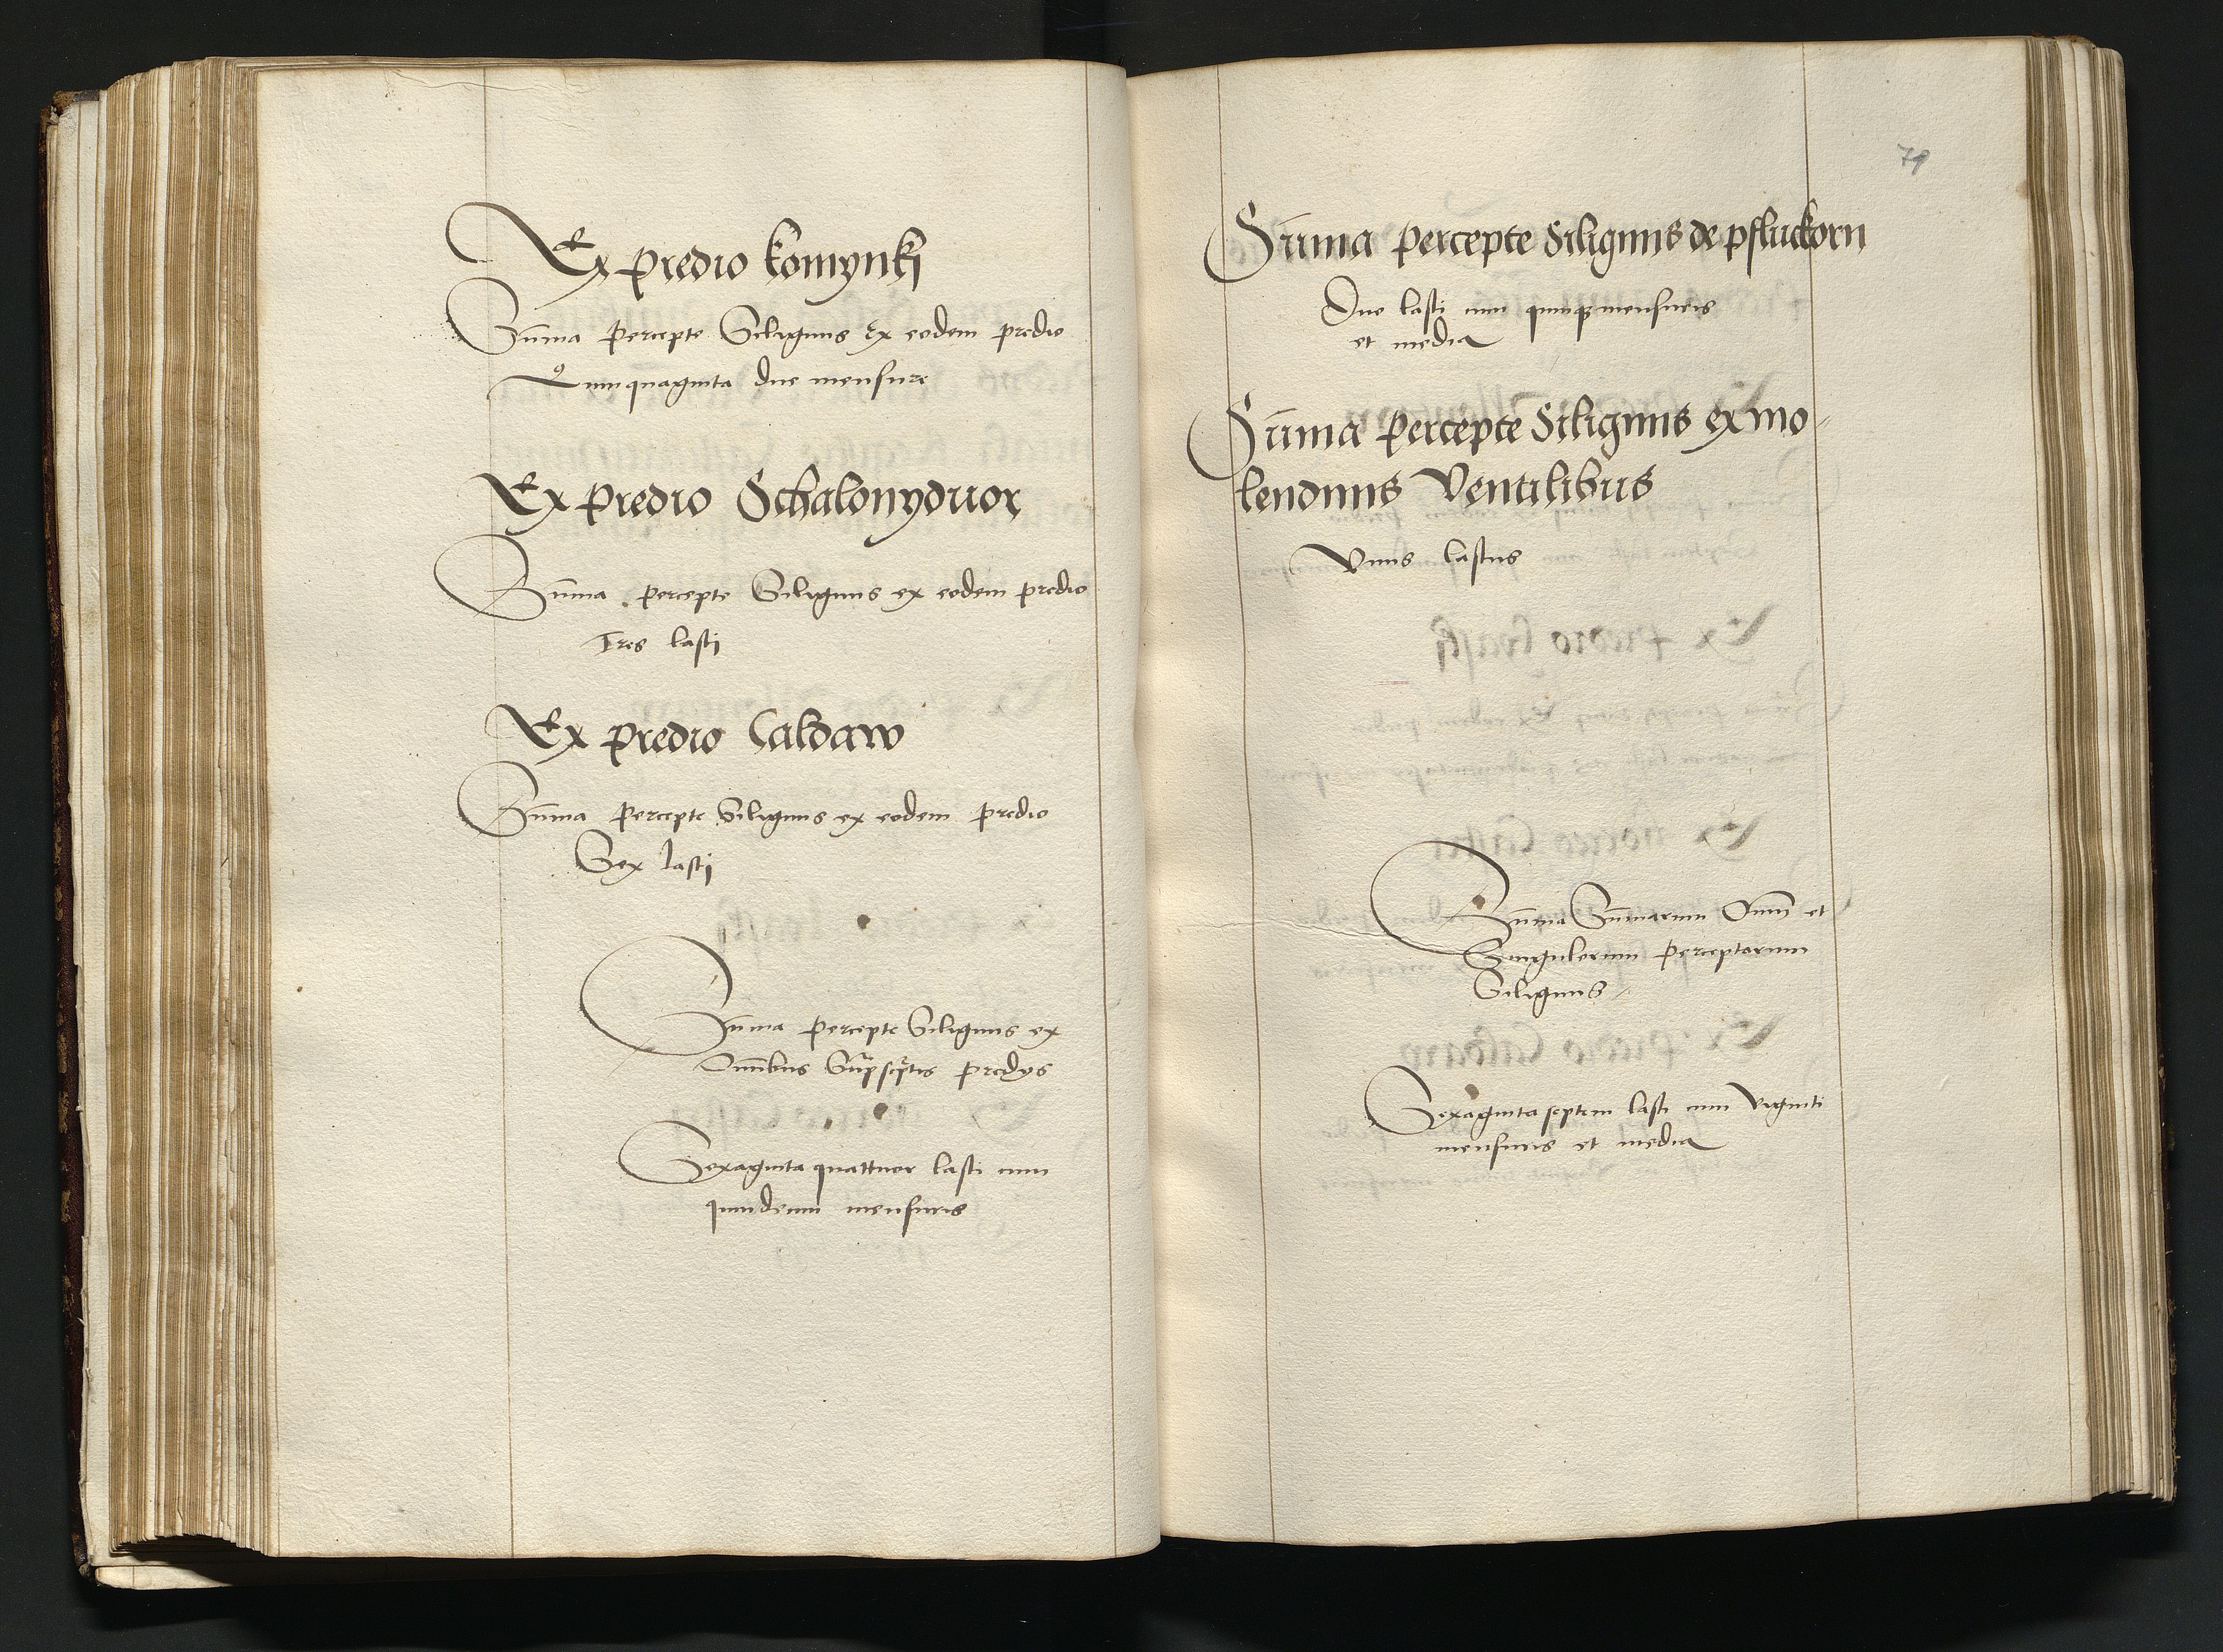 Ex predio komynkj
Sūma percepte Siliginis Ex eodem predio
Quinquaginta due mensure
Ex predio Schalonyduor
Sūma percepte Siliginis ex eodem predio
Tres lastj
Ex predio Caldaw
Sūma percepte Siliginis ex eodem predio
Sex lastj
Sūma percepte Siliginis ex
Om̄ibus Sup̄scptis predys
Sexaginta quattuor lasti cum
quindecim mensuris
79
Sūma percepte Siliginis de pfluckorn
Due lasti cum quinqꝫ mensuris
et media
Sūma percepte Siliginis ex mo-
lendinis Ventilibus
Vnus lastus
Sūma Sūmarum Om̄i et
Singulorum perceptorum
Siliginis
Sexaginta septem lasti cum viginti
mensuris et media